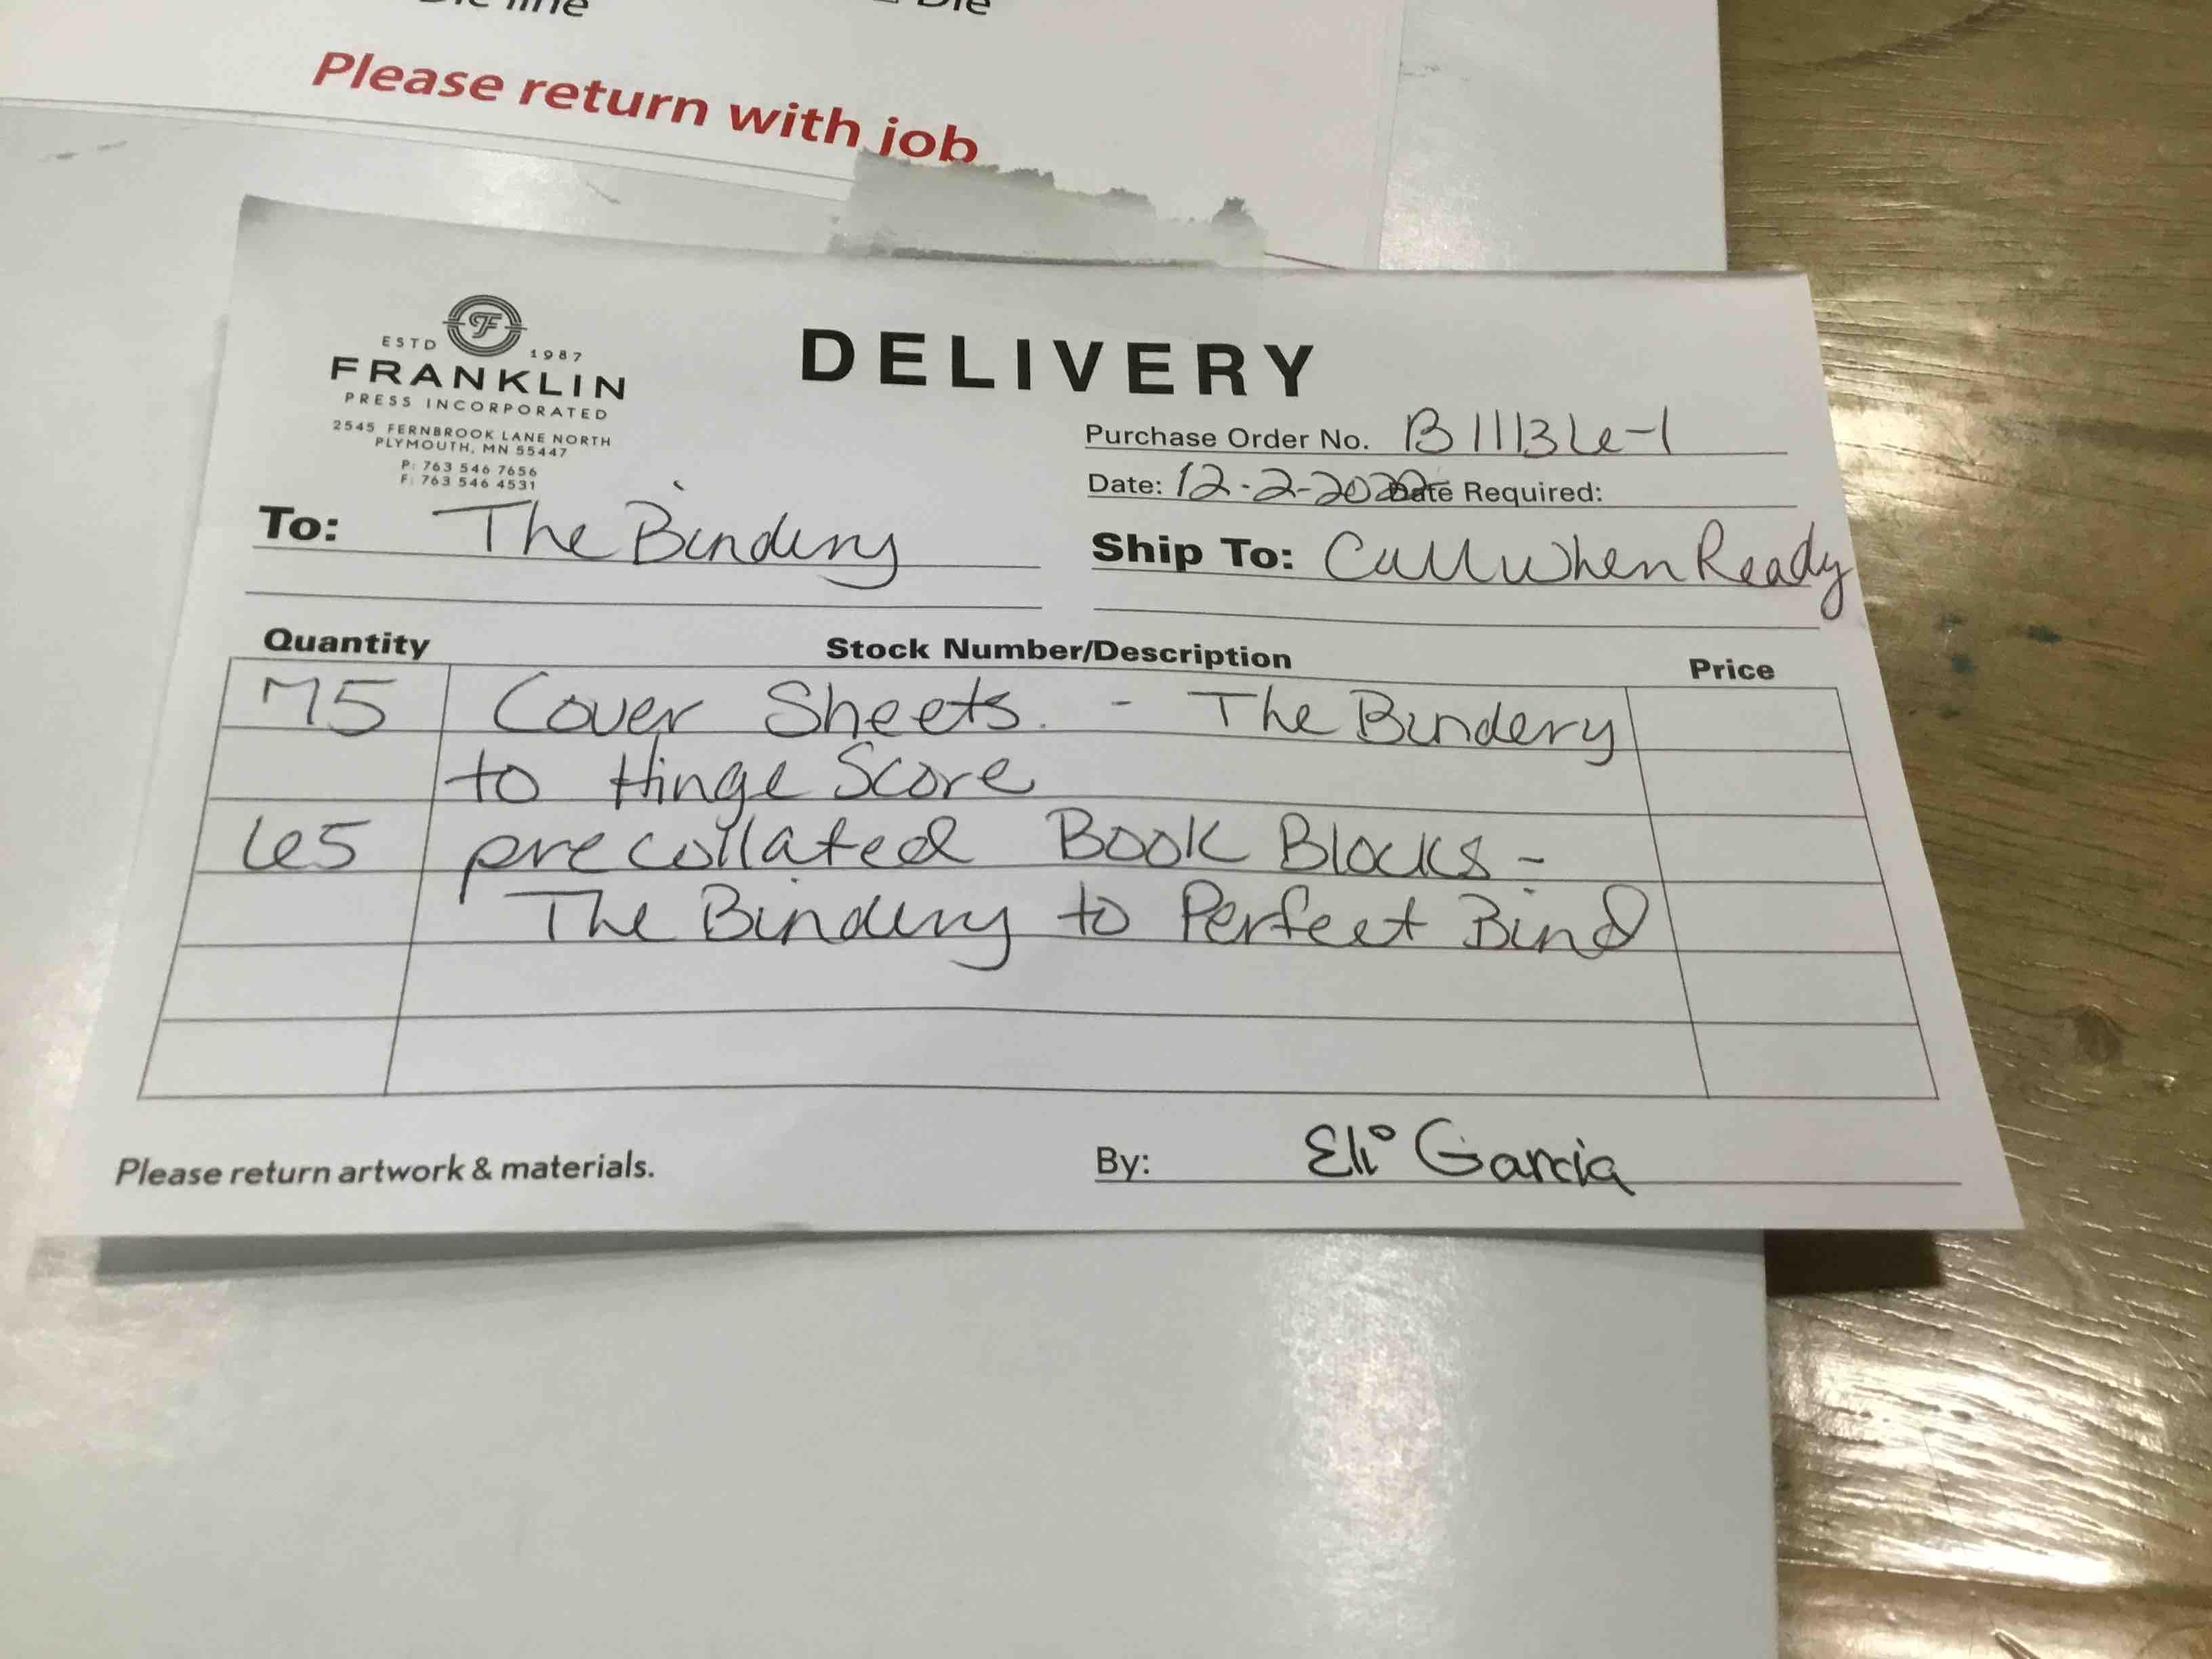 Die line
Die
Please return with job
ESTD 1987
FRANKLIN
PRESS INCORPORATED
2545 FERNBROOK LANE NORTH
PLYMOUTH, MN 55447
P: 763 546 7656
F: 763 546 4531
DELIVERY
Purchase Order No. B11136-1
Date: 12-2-2022 Date Required:
To: The Bindery
Ship To: Call when Ready
Quantity Stock Number/Description Price
75 Cover Sheets. - The Bindery
to Hinge Score
65 precollated Book Blocks -
The Bindery to Perfect Bind
Please return artwork & materials.
By: Eli Garcia